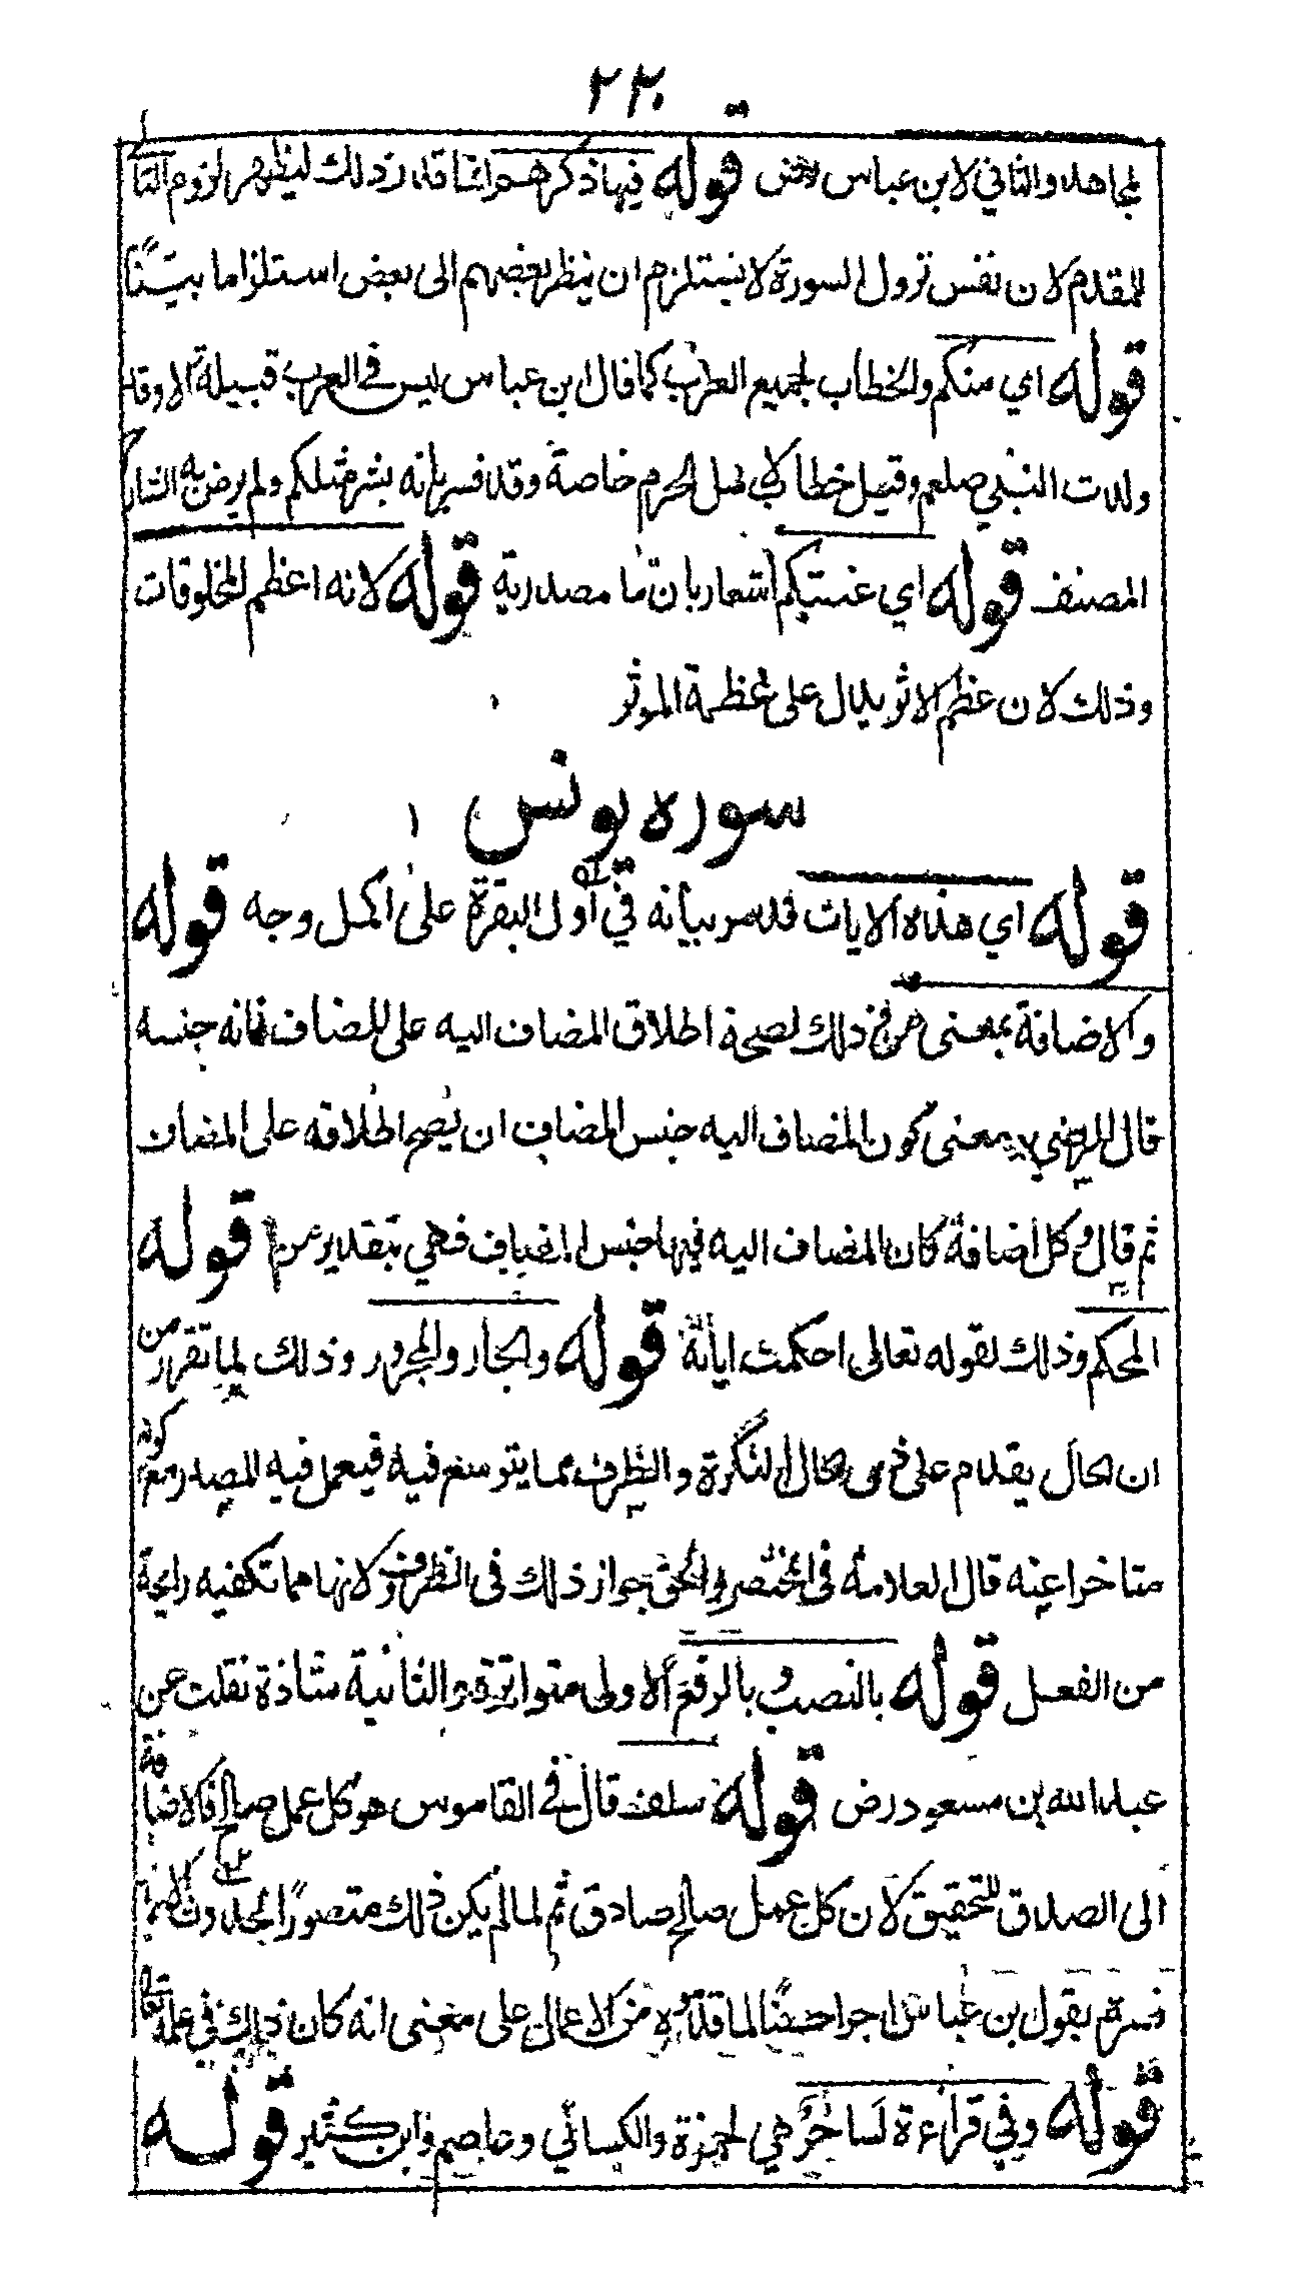 ٢٣٠
لمجاهد والثاني لابن عباس رض قوله فيها ذكرهم انما قدر ذلك ليظهر لزوم التا
للمقدم لان نفس نزول السورة لا يستلزم ان ينظر بعضهم الى بعض استلزاما بيّنًا
قوله اي منكم والخطاب لجميع العرب كما قال ابن عباس ليس في العرب قبيلة الا وقد
ولدت النبي صلعم وقيل خطاب لاهل الحرم خاصة وقد فسر بانه بشر مثلكم ولم يرض به
المصنف قوله اي عنتكم اشعار بان ما مصدرية قوله لانه اعظم المخلوقات
وذلك لان عظم الاثر يدل على عظمة الموثر
سوره يونس
قوله اي هذه الايات قد مر بيانه في اول البقرة على اكمل وجه قوله
والاضافة بمعنى من ذلك لصحة اطلاق المضاف اليه على المضاف فانه جنسه
قال الرضي بمعنى كون المضاف اليه جنس المضاف ان يصح اطلاقه على المضاف
ثم قال وكل اضافة كان المضاف اليه فيها جنس المضاف فهي بتقدير من قوله
المحكم وذلك لقوله تعالى احكمت اياته قوله والجار والمجرور وذلك لما تقرر من
ان الحال يقدم على ذى الحال النكرة والظرف مما يتوسع فيه فيعمل فيه المصدر مع كونه
متاخرا عنه قال العلامة فى المختصر والحق جواز ذلك فى الظروف لانها مما تكفيه رايحة
من الفعل قوله بالنصب وبالرفع الاولى متواترة والثانية شاذة نقلت عن
عبد الله بن مسعود رض قوله سلف قال في القاموس هو كل عمل صالح فالاضافة
الى الصدق للتحقيق لان كل عمل صالح صادق ثم لما لم يكن ذلك متصورًا
فسره بقول بن عباس اجرا حسنًا لما قدموه من الاعمال على معنى انه كان ذلك في علمه تعالى
قوله وفي قراءة لساحر هي لحمزة والكسائي وعاصم وابن كثير قوله